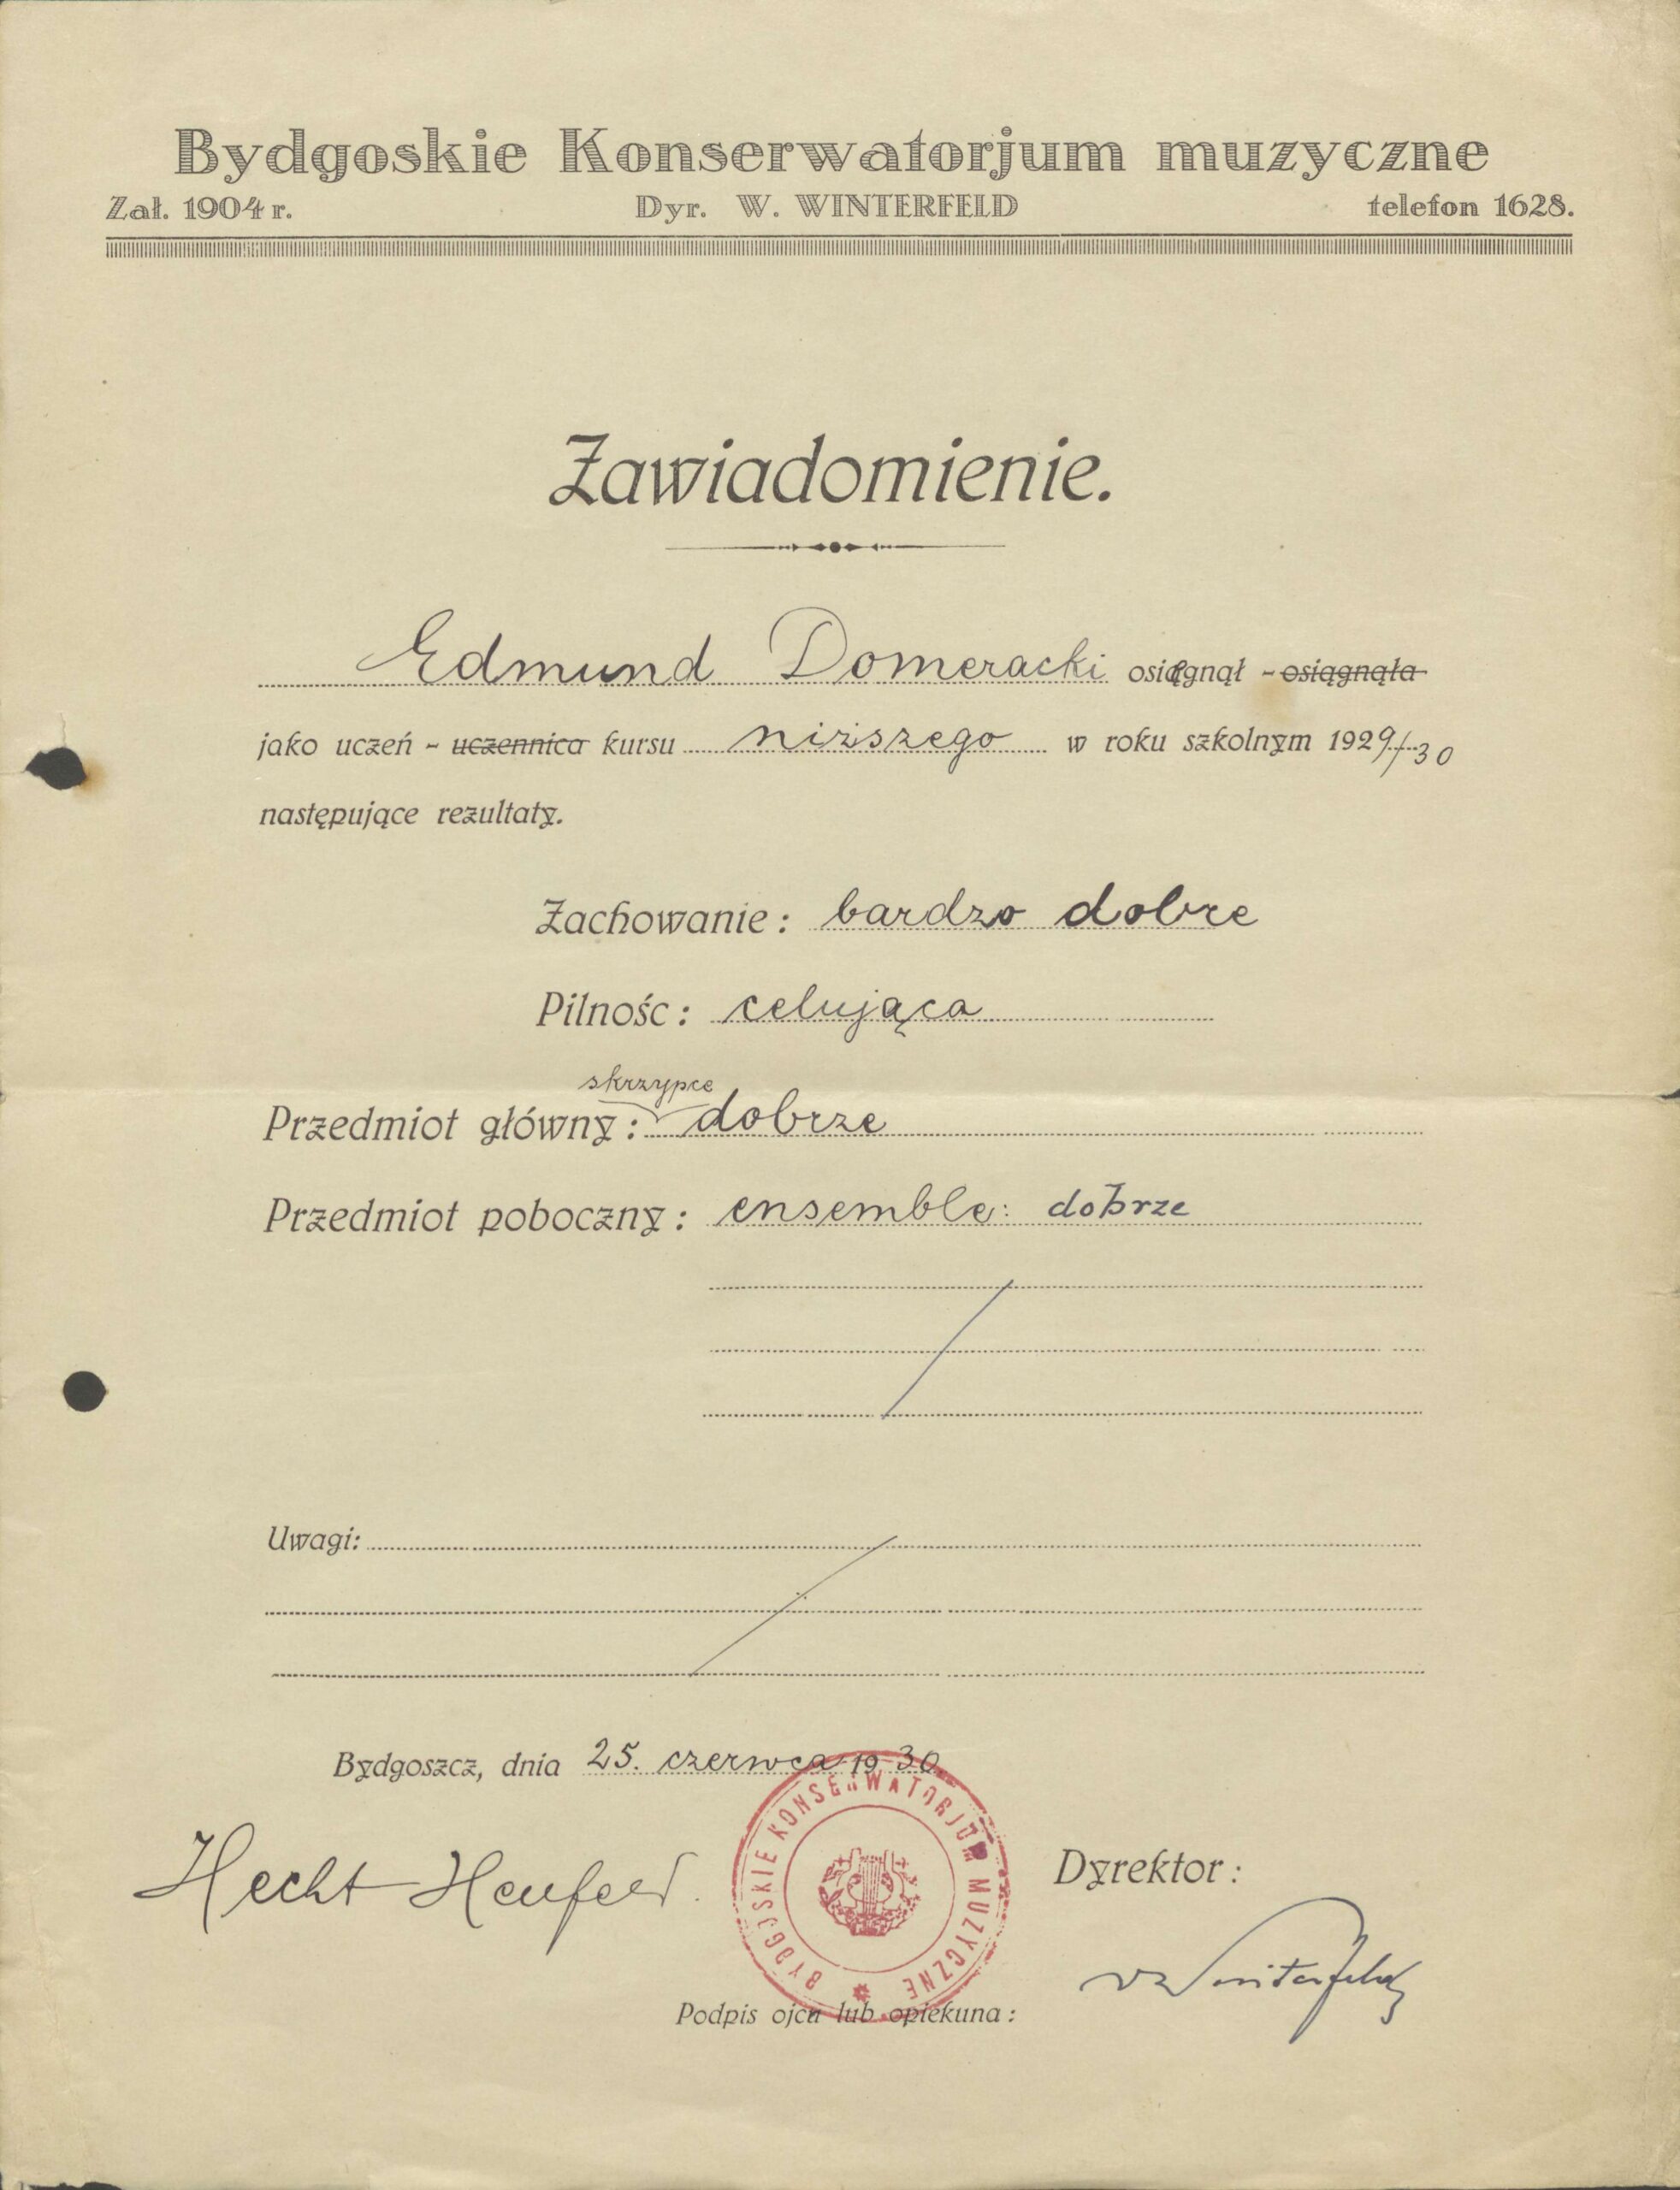 Bydgoskie Konserwatorjum muzyczne
Zał. 1904 r. Dyr. W. WINTERFELD telefon 1628.
Zawiadomienie.
Edmund Domeracki osiągnął - osiągnęła
jako uczeń - uczennica kursu niższego w roku szkolnym 1929/30
następujące rezultaty.
Zachowanie: bardzo dobre
Pilnośc: celująca
skrzypce
Przedmiot główny: dobrze
Przedmiot poboczny: ensemble: dobrze
Uwagi:
Bydgoszcz, dnia 25. czerwca 1930.
BYDGJSKIE KONSERWATORJUM MUZYCZNE
Hecht
Dyrektor:
Winterfeld
Podpis ojca lub opiekuna: